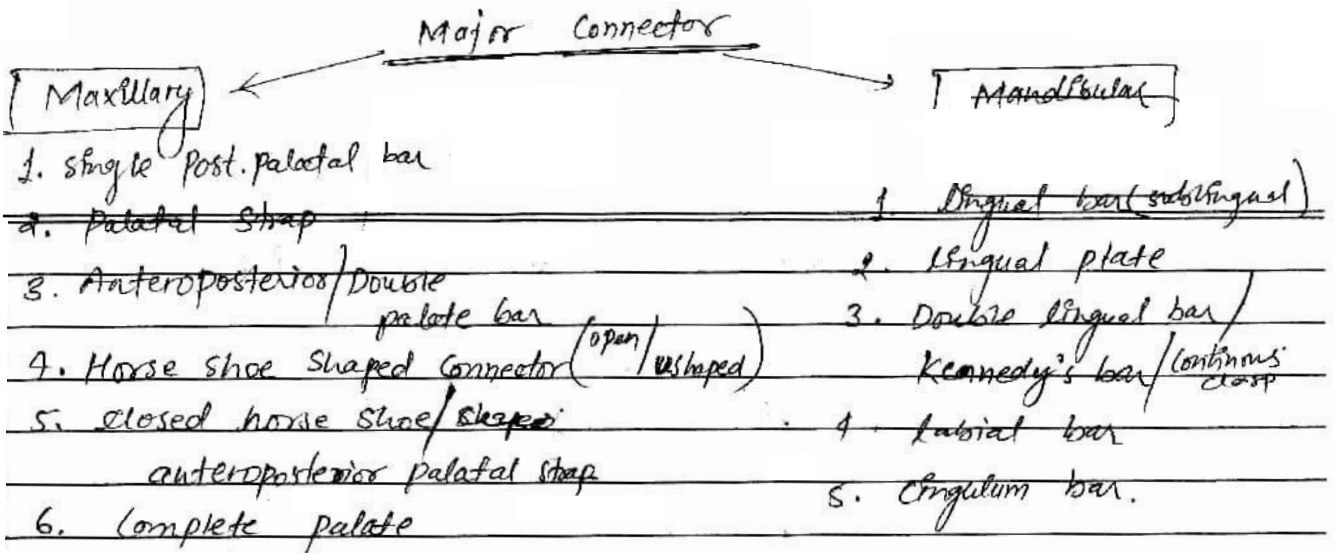 Major Connector
Maxillary
1. Single Post. palatal bar
2. Palatal Strap
3. Anteroposterior/Double
palate bar
4. Horse shoe shaped Connector (open/ushaped)
5. Closed horse shoe/
anteroposterior palatal strap
6. Complete palate
Mandibular
1. Lingual bar (sublingual)
2. Lingual plate
3. Double lingual bar/
Kennedy's bar/continous clasp
4. Labial bar
5. Cingulum bar.